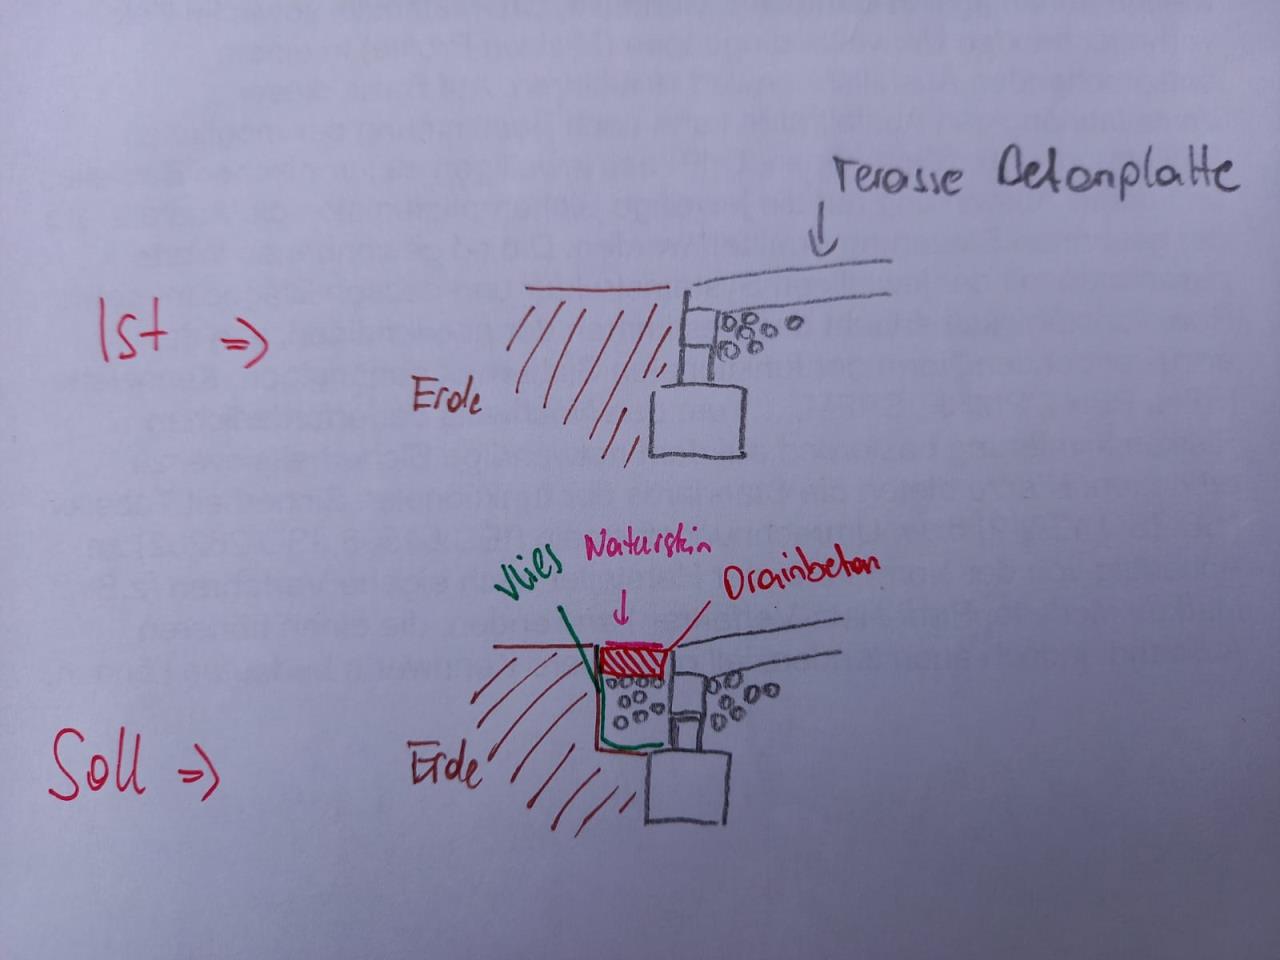 Terasse Betonplatte
Ist =>
Erde
Vlies
Naturstein
Drainbeton
Soll =>
Erde